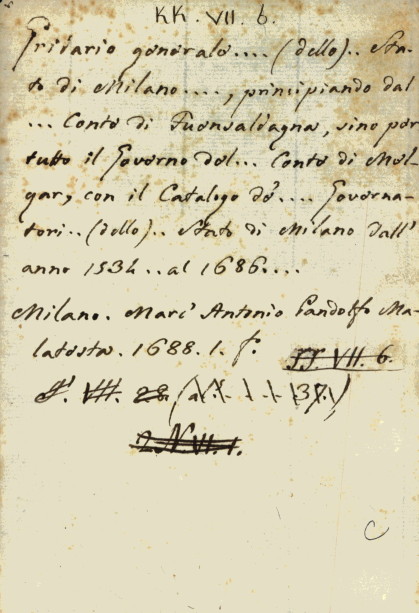 KK. VII. 6.
Gridario generale.... (dello).. Sta-
to di Milano...., principiando dal
... Conte di Fuensaldagna, sino per
tutto il Governo del... Conte di Mel-
gar, con il Catalogo de'.... Governa-
tori.. (dello).. Stato di Milano dall'
anno 1534.. al 1686....
Milano. Marc' Antonio Pandolfo Ma-
latesta. 1688. 1. f.
II. VII. 6.
VII. 28.
2 N. VI. 1.
C